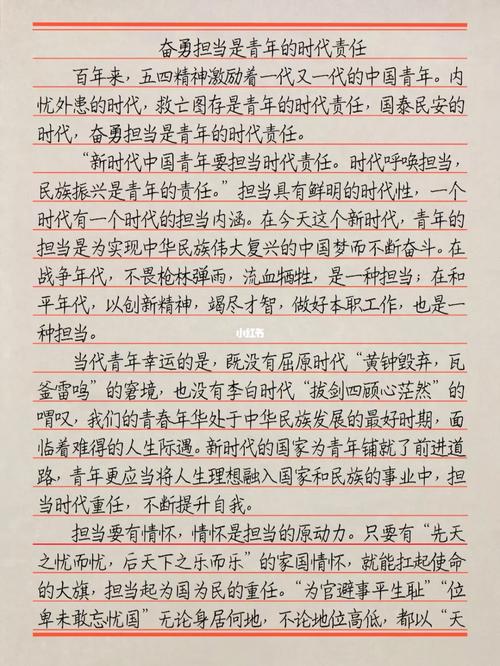 奋勇担当是青年的时代责任
百年来，五四精神激励着一代又一代的中国青年。内
忧外患的时代，救亡图存是青年的时代责任，国泰民安的
时代，奋勇担当是青年的时代责任。
“新时代中国青年要担当时代责任。时代呼唤担当，
民族振兴是青年的责任。”担当具有鲜明的时代性，一个
时代有一个时代的担当内涵。在今天这个新时代，青年的
担当是为实现中华民族伟大复兴的中国梦而不断奋斗。在
战争年代，不畏枪林弹雨，流血牺牲，是一种担当；在和
平年代，以创新精神，竭尽才智，做好本职工作，也是一
种担当。
小红书
当代青年幸运的是，既没有屈原时代“黄钟毁弃，瓦
釜雷鸣”的窘境，也没有李白时代“拔剑四顾心茫然”的
喟叹，我们的青春年华处于中华民族发展的最好时期，面
临着难得的人生际遇。新时代的国家为青年铺就了前进道
路，青年更应当将人生理想融入国家和民族的事业中，担
当时代重任，不断提升自我。
担当要有情怀，情怀是担当的原动力。只要有“先天
之忧而忧，后天下之乐而乐”的家国情怀，就能扛起使命
的大旗，担当起为国为民的重任。“为官避事平生耻”“位
卑未敢忘忧国”无论身居何地，不论地位高低，都以“天